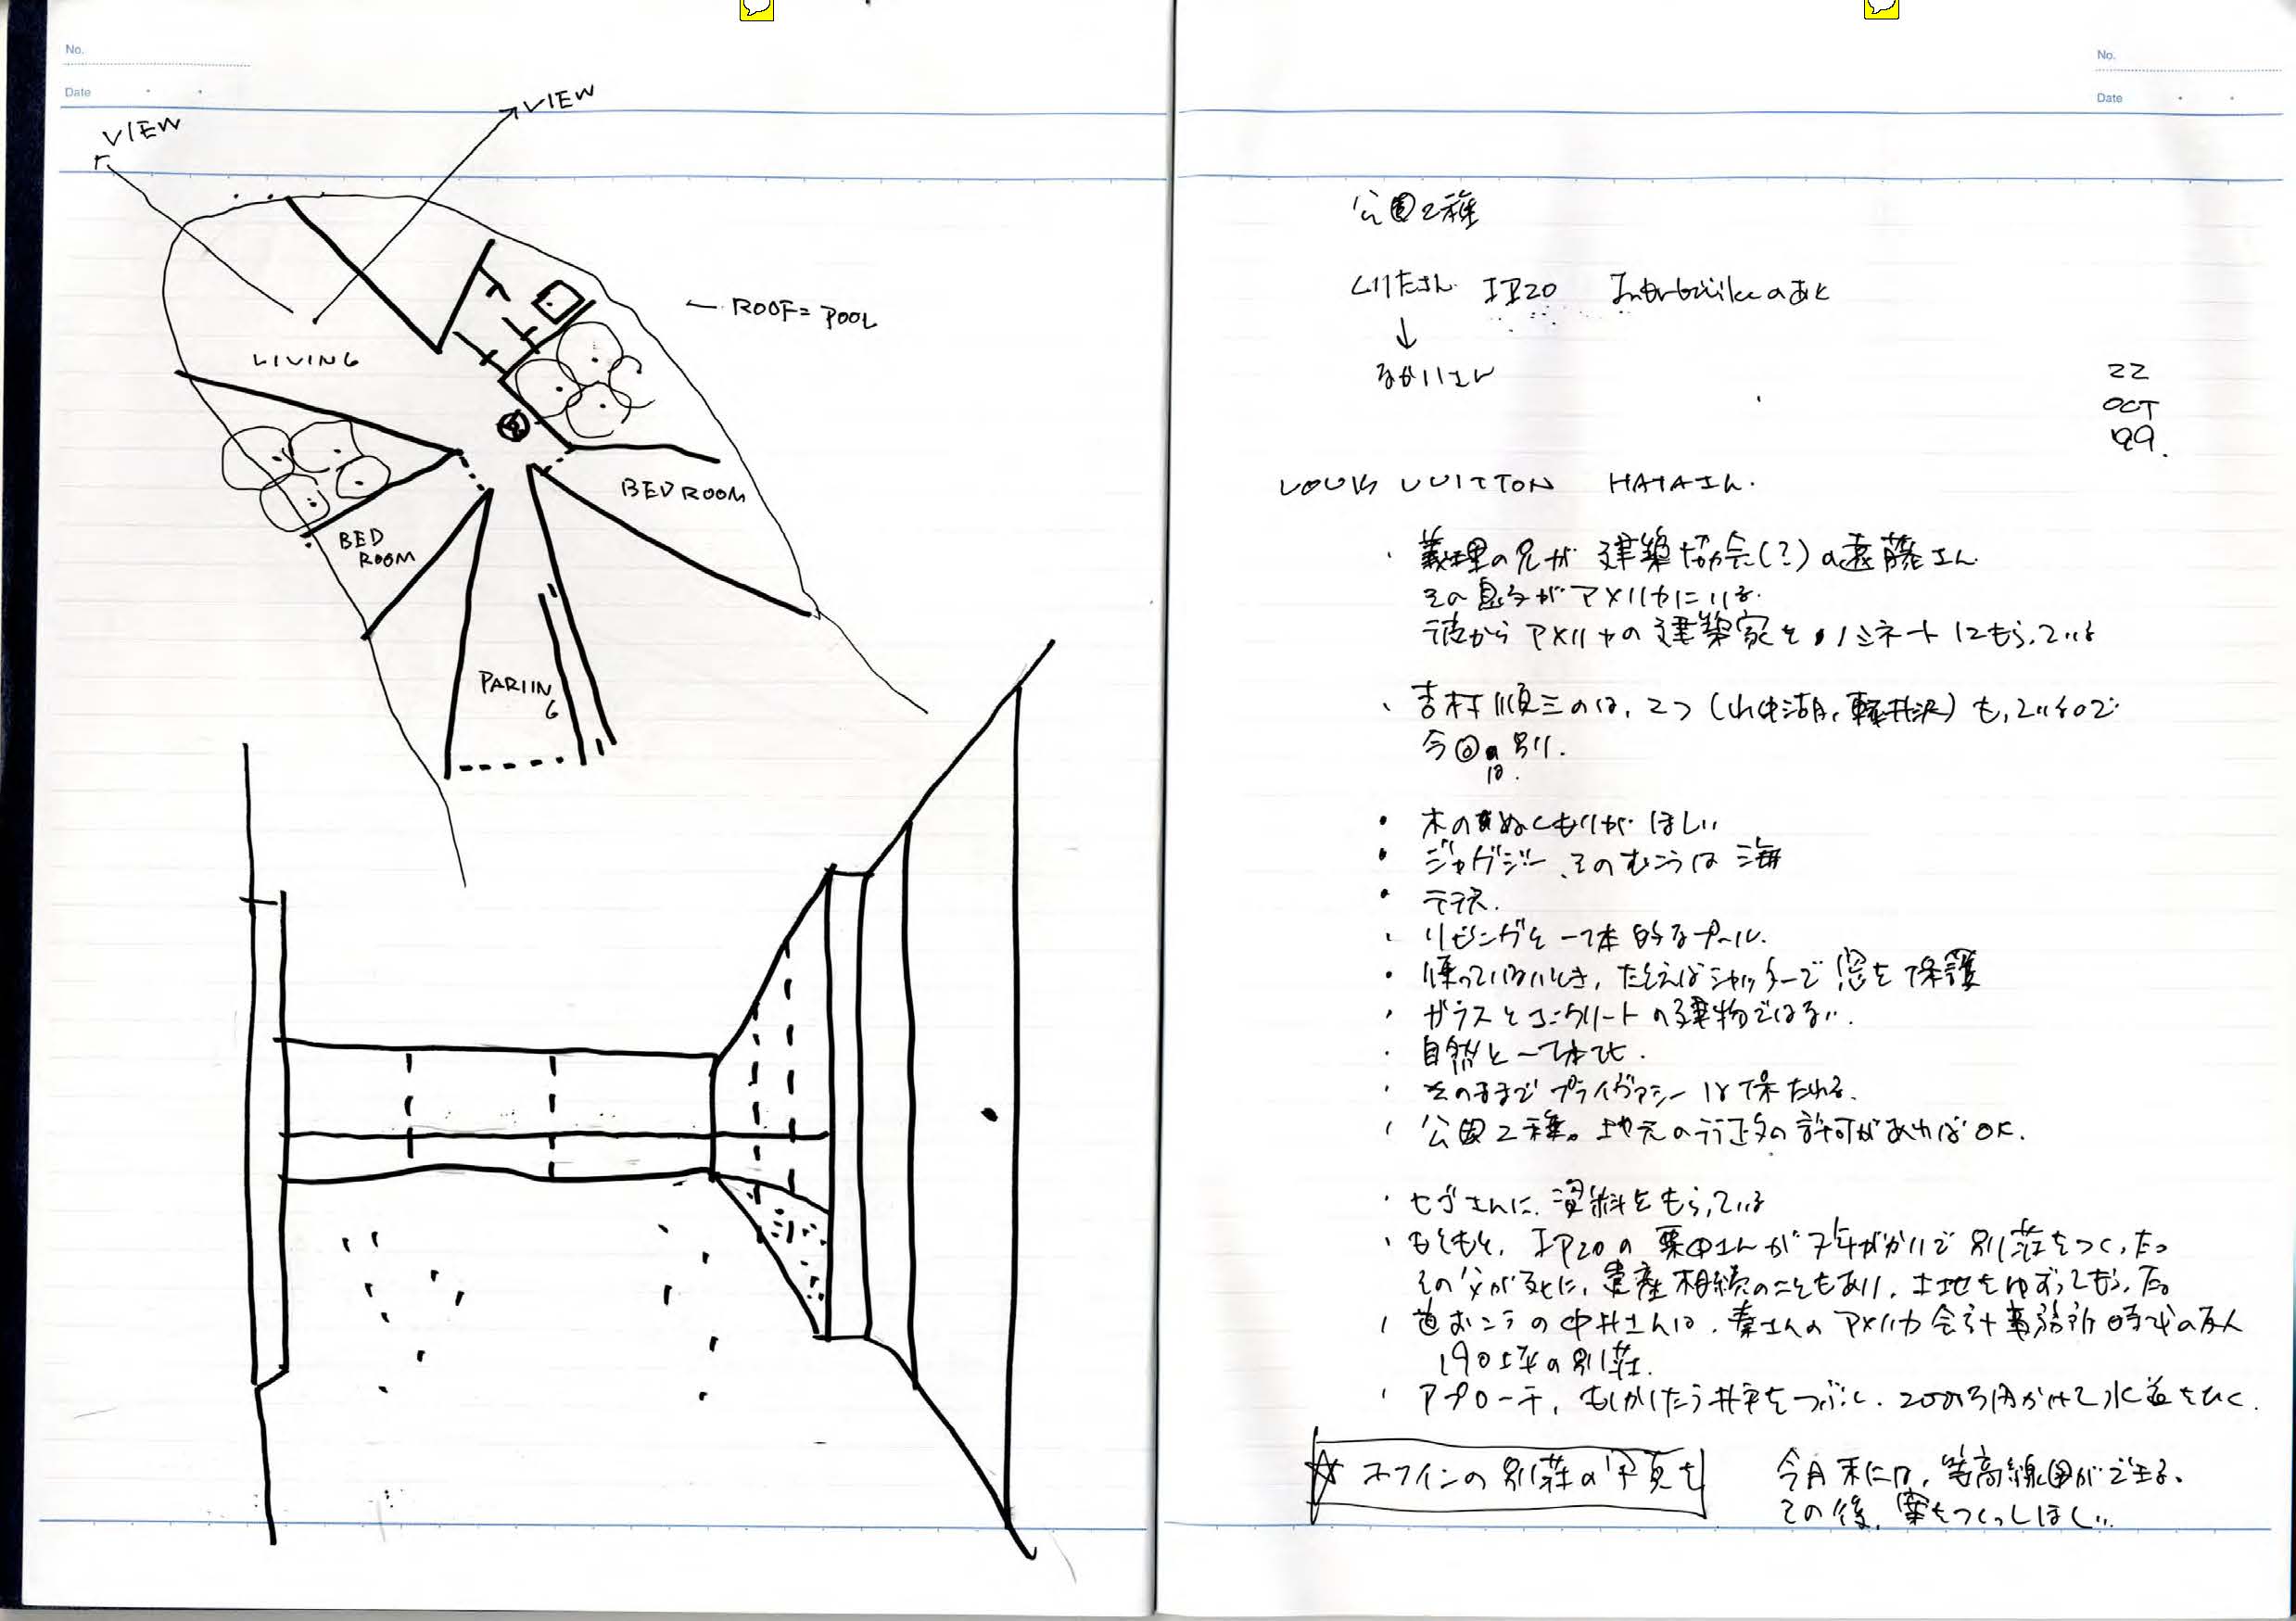 No.
Date
VIEW
VIEW
← ROOF = POOL
LIVING
BED ROOM
BED
ROOM
PARIIN
G
No.
Date
公園2種
くりたさん
↓
22
OCT
'99.
LOUIS VUITTON HATAさん.
・義理の兄が 建築協会(?)の遠藤さん
その息子がアメリカにいる.
彼から アメリカの建築家を ノミネートしてもらっている
・吉村順三のは、2つ (山中湖、軽井沢) もっているので
今回は 別.
・木のぬくもりが ほしい
・ジャグジー、そのむこうは 海
・テラス.
・リビングと一体的なプール.
・使っていないとき、たとえばシャッターで 窓を保護
・ガラスとコンクリートの建物ではない.
・自然と一体化.
・そのままで プライヴァシーは保たれる.
・公園2種。地元の行政の許可があればOK.
・セゴさんに、資料をもらっている
・もともと、 の 栗田さんが 7年がかりで 別荘をつくった。
その父が死に、遺産相続のこともあり、土地をゆずってもらった。
・道むこうの中井さんは、秦さんの アメリカ会計事務所時代の友人
190坪の別荘.
・アプローチ、もしかしたら井戸をつぶし、200万円かけて水道をひく.
☆ ホフインの 別荘の写真を
今月末には、等高線図ができる。
その後、案をつくってほしい.